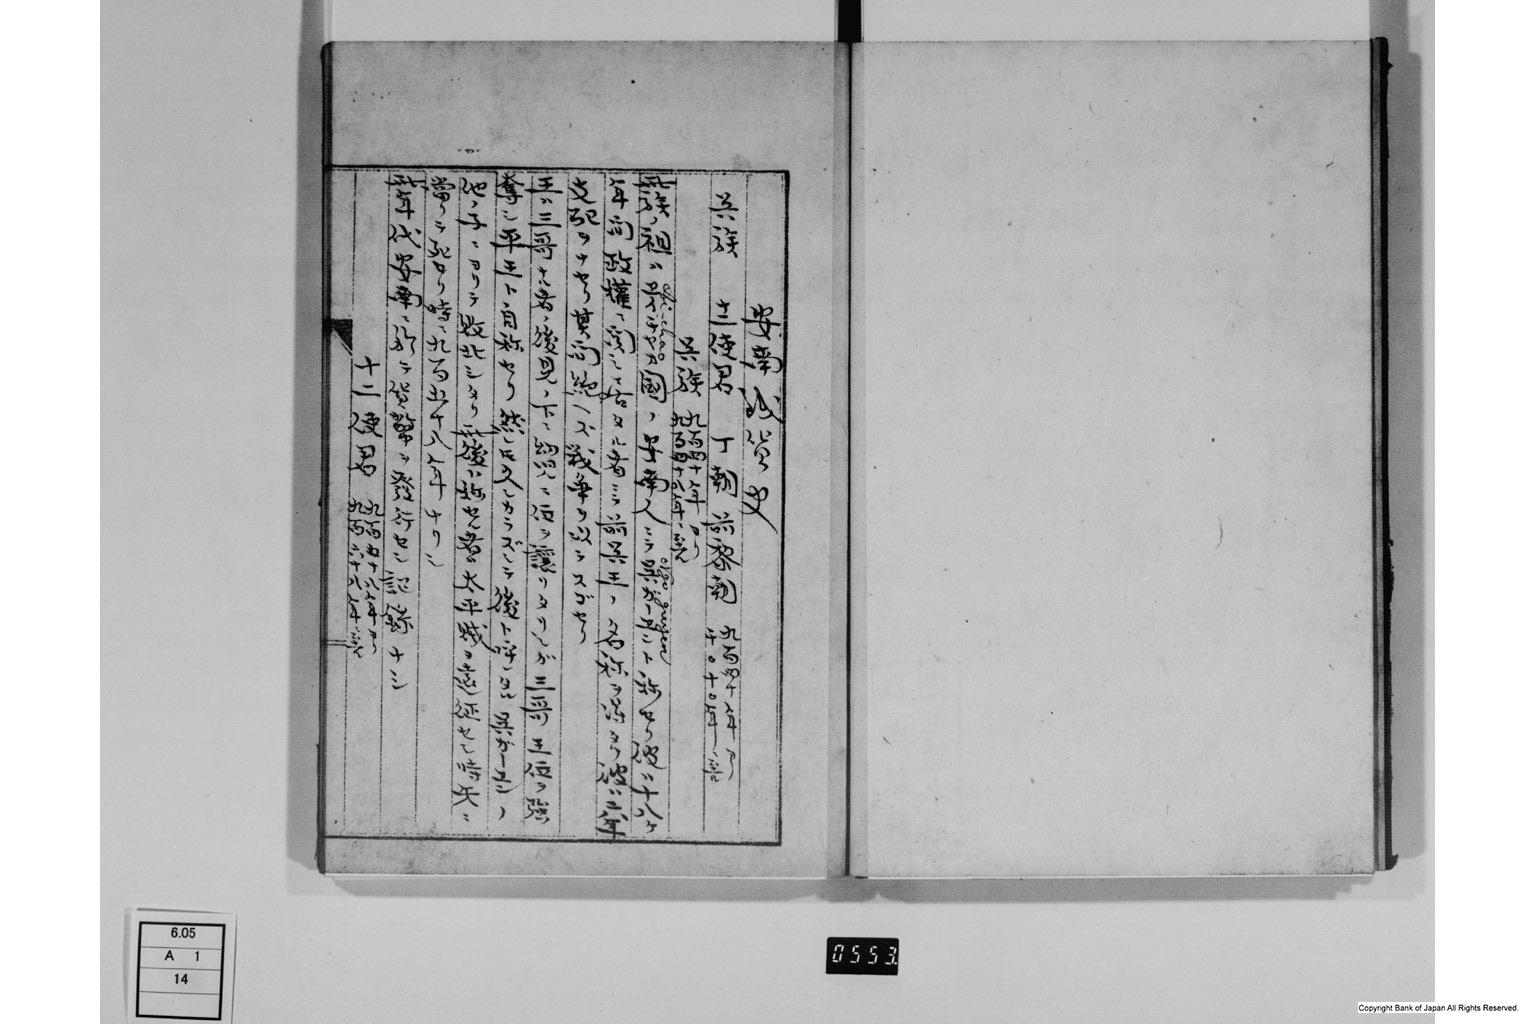 安南銭貨史
呉族 十二使君 丁朝 前黎朝 九百四十年ヨリ
千〇十〇年ニ至ル
呉族 九百四十年ヨリ
此族ノ祖ハ 國ノ安南人ニテ ト称セリ彼ハ十八ヶ
年間政権ニ シ居タル者ニテ前呉王ノ名称ヲ得タリ彼ハ
支配ヲナセリ其間絶ヘズ戦争ヲ以テスゴセリ
王ハ三哥ナル者ノ後見ノ下ニ幼児ニ位ヲ譲リタリシガ三哥王位ヲ強
奪シ平王ト自称セリ然シ久シカラズシテ後ト呼シタル
他ノ子ニヨリテ敗北シタリ此後 ト称セル者太平 ヲ 征セシ時矢ニ
當リテ死セリ時ニ九百五十八年ナリシ
此年代安南ニ於テ貨幣ヲ發行セシ記録ナシ
十二使君 九百五十八年ヨリ
九百六十八年ニ至ル
6.05
A 1
14
0553
Copyright Bank of Japan All Rights Reserved.